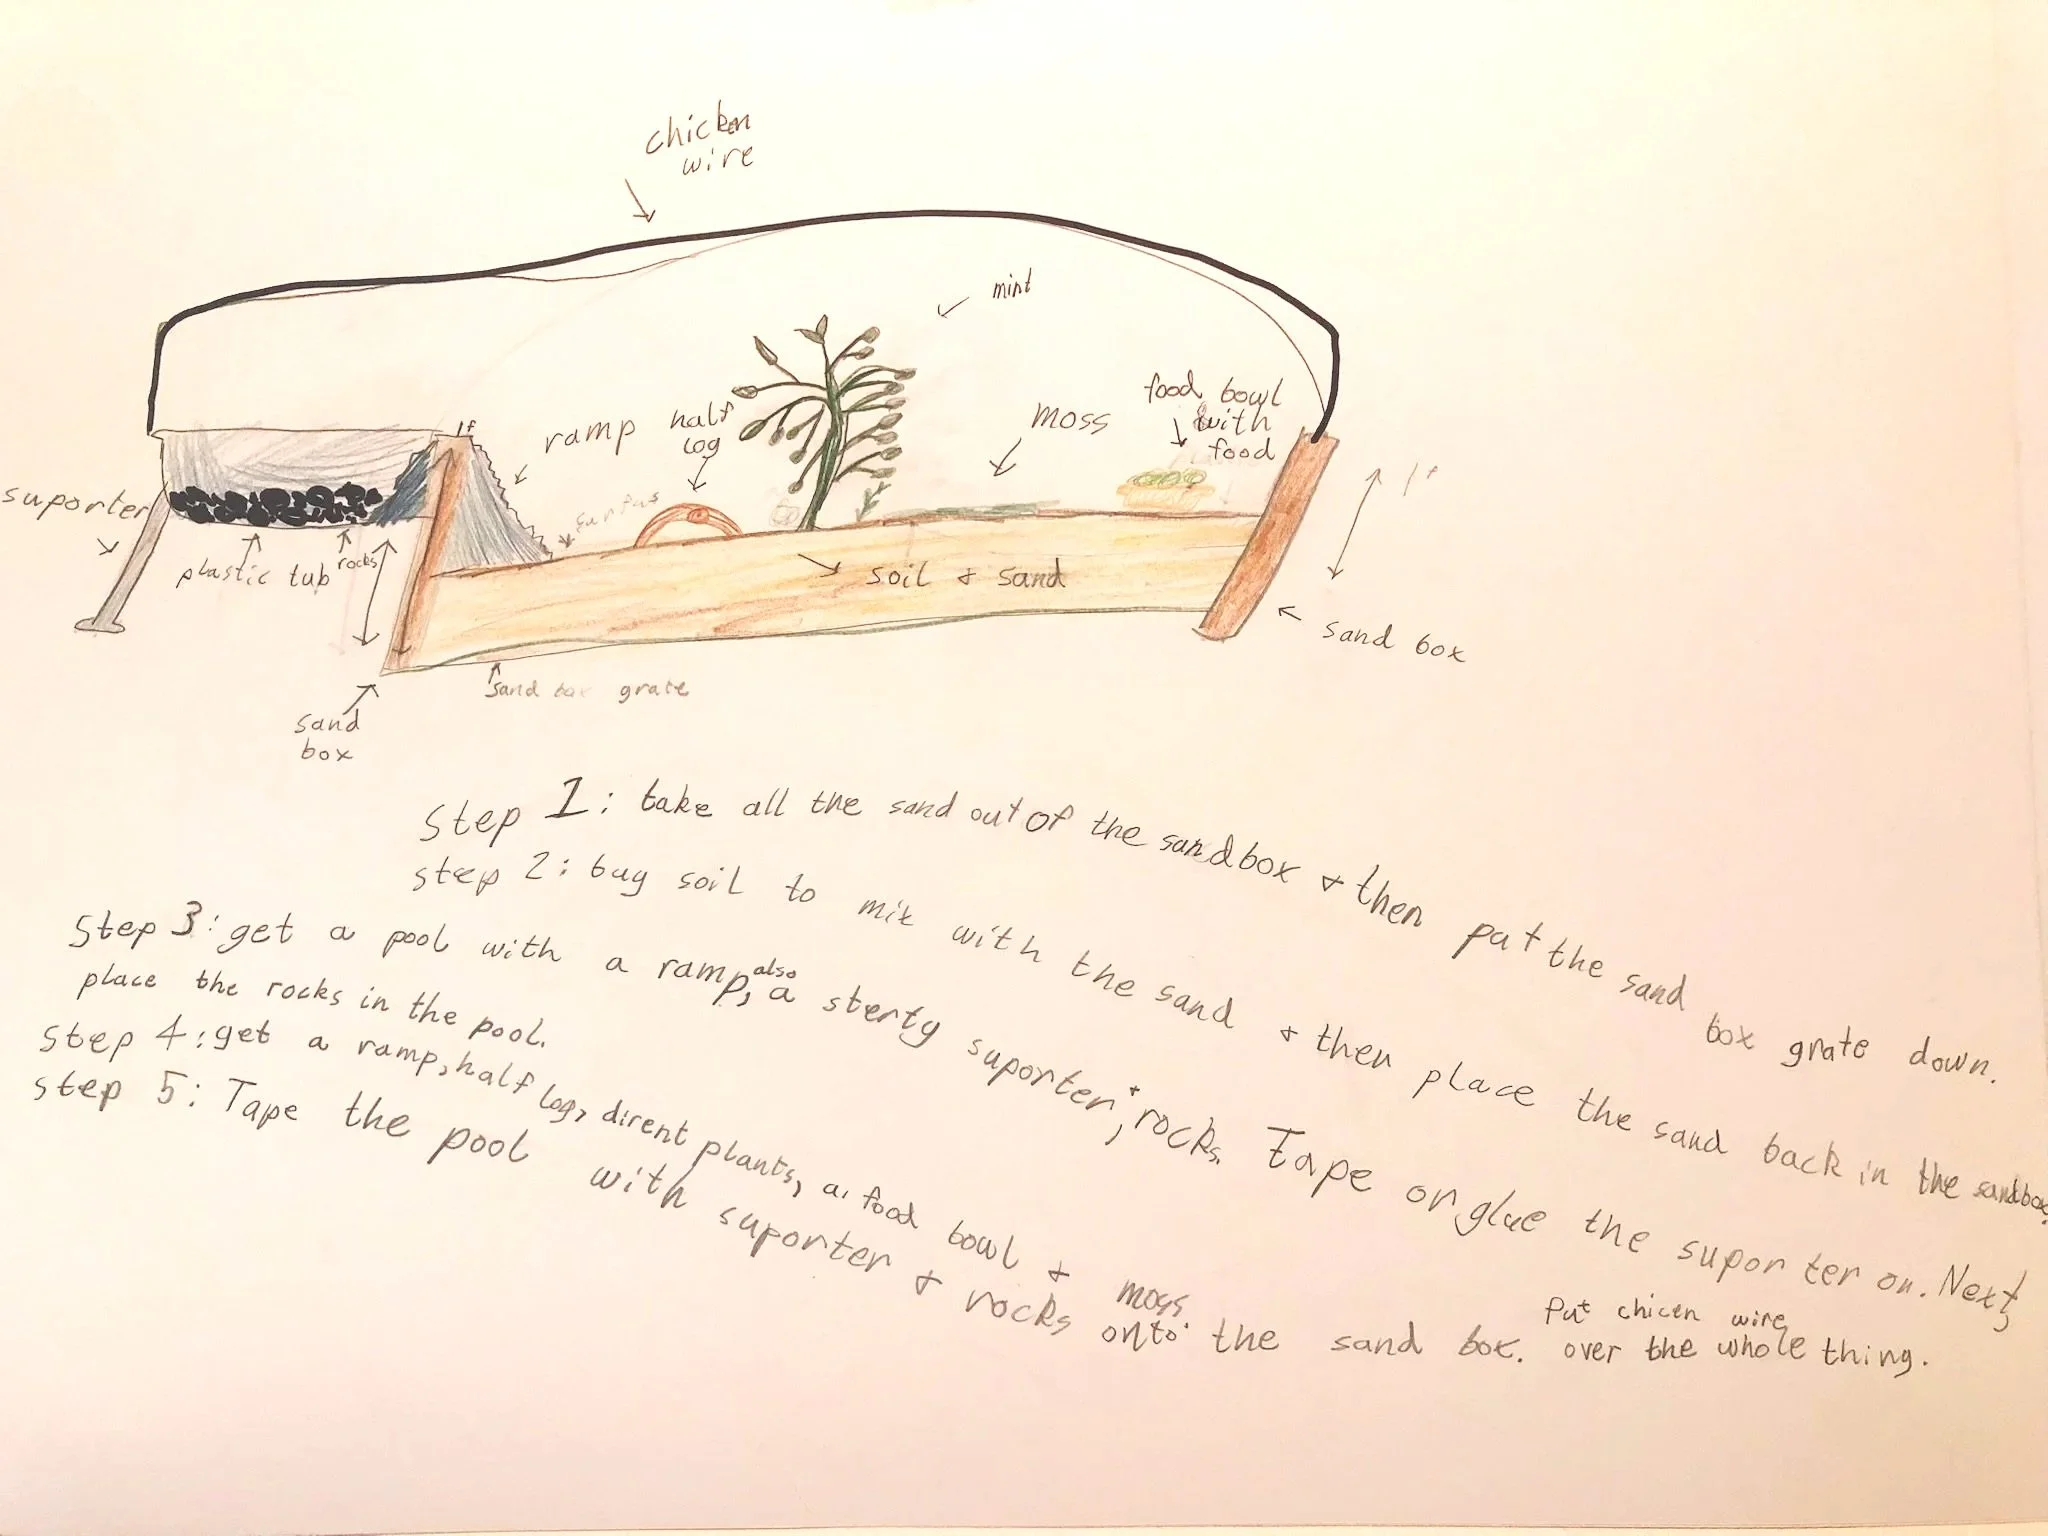 chicken
wire
mint
food bowl
with
food
moss
half
log
ramp
1f
1f
suporter
rocks
plastic tub
soil & sand
sand box
sand box grate
sand
box
Step 1: take all the sand out of the sandbox & then put the sand box grate down.
step 2: buy soil to mix with the sand & then place the sand back in the sandbox.
Step 3: get a pool with a ramp, also a sterty suporter, + rocks. Tape or glue the suporter on. Next,
place the rocks in the pool.
Step 4: get a ramp, half log, dirent plants, a food bowl & moss.
step 5: Tape the pool with suporter & rocks onto the sand box. Put chicen wire
over the whole thing.